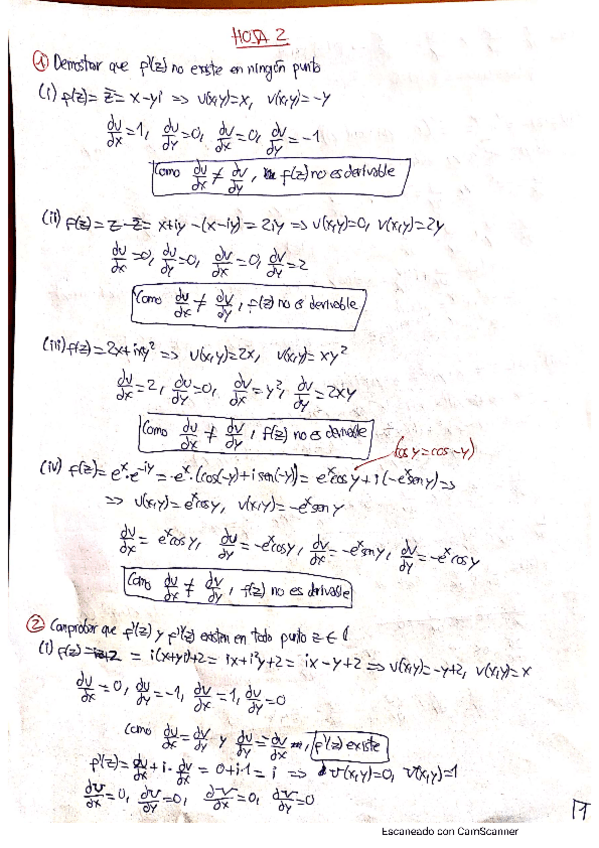 HOJA 2
① Demostrar que f'(z) no existe en ningún punto
(i) f(z) = z̄ = x - yi ⇒ u(x,y) = x, v(x,y) = -y
du/dx = 1, du/dy = 0, dv/dx = 0, dv/dy = -1
Como du/dx ≠ dv/dy, f(z) no es derivable
(ii) f(z) = z - z̄ = x+iy - (x-iy) = 2iy ⇒ u(x,y) = 0, v(x,y) = 2y
du/dx = 0, du/dy = 0, dv/dx = 0, dv/dy = 2
Como du/dx ≠ dv/dy, f(z) no es derivable
(iii) f(z) = 2x + ixy² ⇒ u(x,y) = 2x, v(x,y) = xy²
du/dx = 2, du/dy = 0, dv/dx = y², dv/dy = 2xy
Como du/dx ≠ dv/dy, f(z) no es derivable
(cos y = cos -y)
(iv) f(z) = eˣ·e⁻ⁱʸ = eˣ·(cos(-y) + i sen(-y)) = eˣ cos y + i(-eˣ sen y) ⇒
⇒ u(x,y) = eˣ cos y, v(x,y) = -eˣ sen y
du/dx = eˣ cos y, du/dy = -eˣ cos y, dv/dx = -eˣ sen y, dv/dy = -eˣ cos y
Como du/dx ≠ dv/dy, f(z) no es derivable
② Comprobar que f'(z) y f''(z) existen en todo punto z ∈ ℂ
(i) f(z) = iz+2 = i(x+yi)+2 = ix + i²y + 2 = ix - y + 2 ⇒ u(x,y) = -y+2, v(x,y) = x
du/dx = 0, du/dy = -1, dv/dx = 1, dv/dy = 0
Como du/dx = dv/dy y du/dy = -dv/dx, f'(z) existe
f'(z) = du/dx + i·dv/dx = 0 + i·1 = i ⇒ u(x,y) = 0, v(x,y) = 1
du/dx = 0, du/dy = 0, dv/dx = 0, dv/dy = 0
1
Escaneado con CamScanner